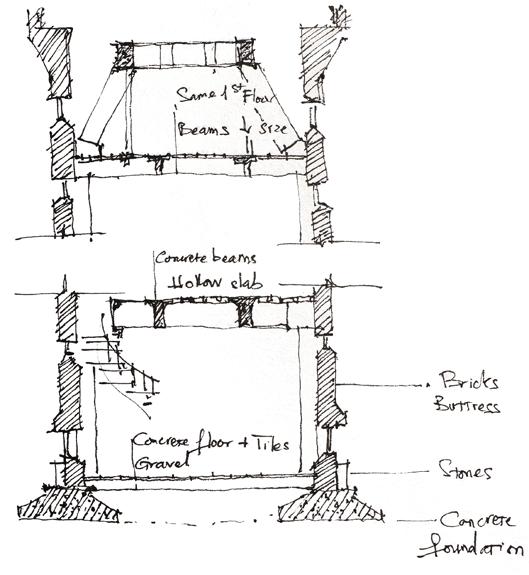 Same 1st Floor
Beams ↓ Size
Concrete beams
Hollow slab
Bricks
Buttress
Concrete floor + Tiles
Gravel
Stones
Concrete
foundation